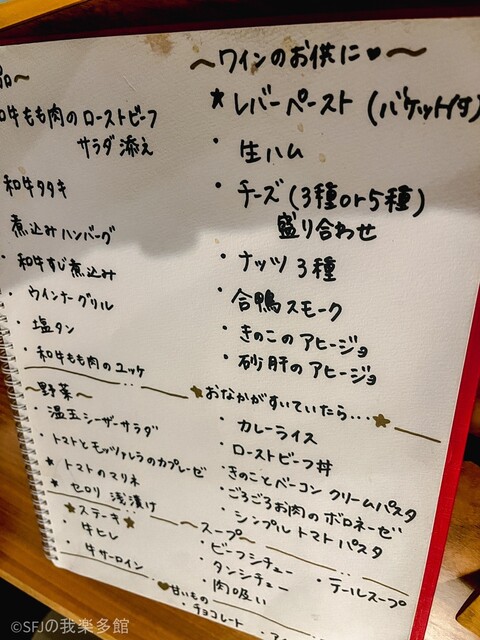 品〜
和牛もも肉のローストビーフ
サラダ添え
和牛タタキ
煮込みハンバーグ
・和牛すじ煮込み
・ウインナーグリル
・塩タン
・和牛もも肉のユッケ
〜野菜〜
・温玉シーザーサラダ
・トマトとモッツァレラのカプレーゼ
★トマトのマリネ
★セロリ浅漬け
★ステーキ★
・牛ヒレ
・牛サーロイン
〜ワインのお供に♥〜
★レバーペースト(バケット付)
・生ハム
・チーズ(3種or5種)
盛り合わせ
・ナッツ3種
・合鴨スモーク
・きのこのアヒージョ
・砂肝のアヒージョ
★おなかがすいていたら・・・★
・カレーライス
・ローストビーフ丼
・きのことベーコンクリームパスタ
・ごろごろお肉のボロネーゼ
・シンプルトマトパスタ
〜スープ〜
・ビーフシチュー
・タンシチュー
・肉吸い
・テールスープ
♥甘いもの
・チョコレート
©SFJの我楽多館